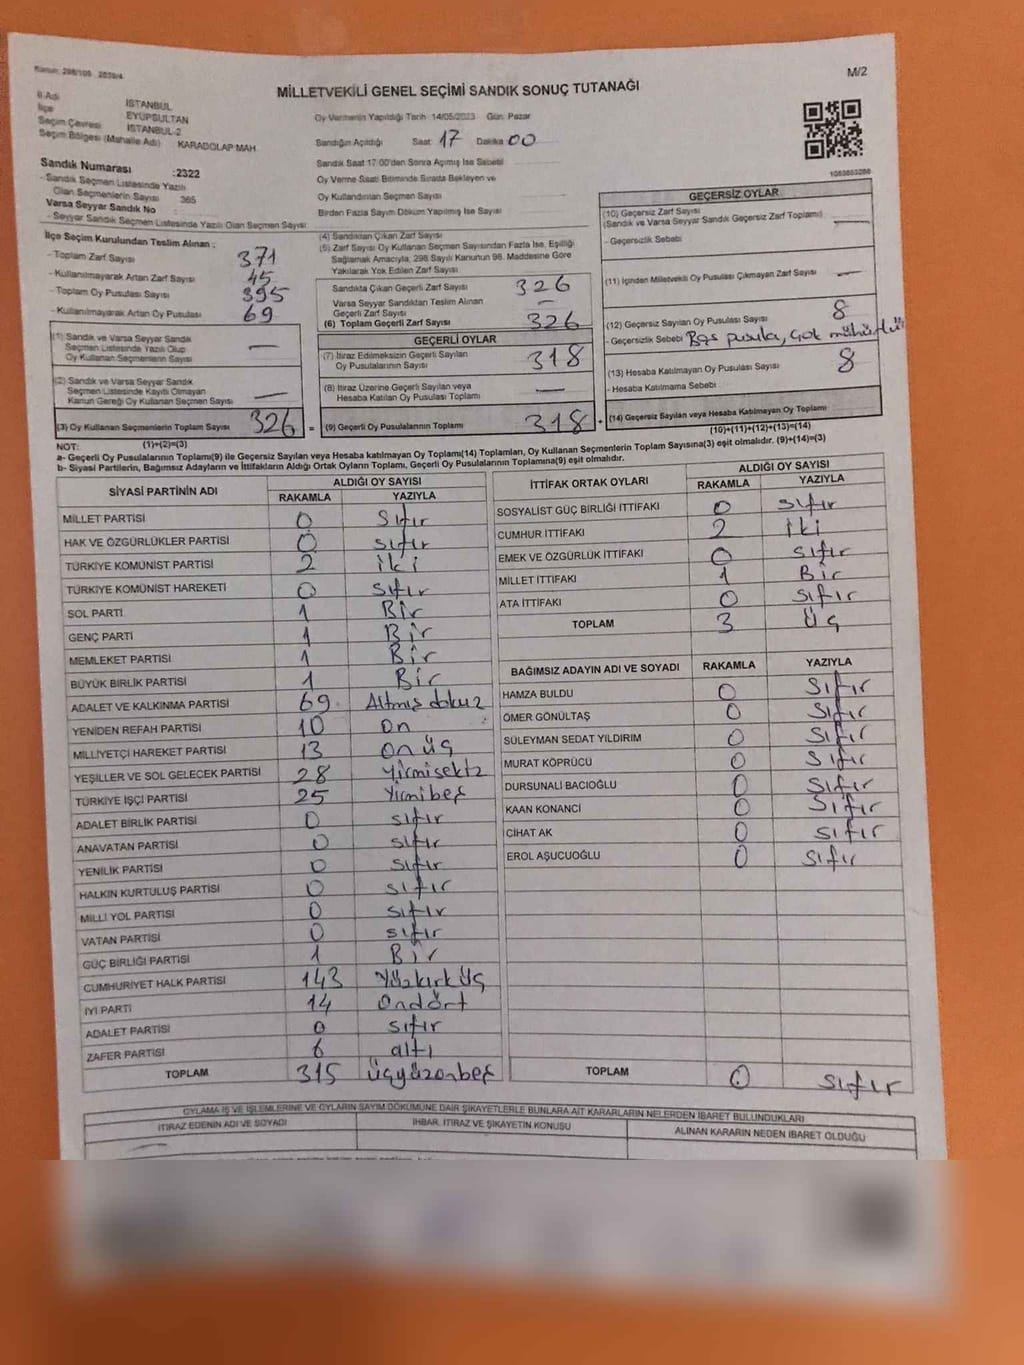 Kanun: 298/105 2839/4
M/2
MİLLETVEKİLİ GENEL SEÇİMİ SANDIK SONUÇ TUTANAĞI
İl Adı İSTANBUL
İlçe EYÜPSULTAN
Seçim Çevresi İSTANBUL-2
Seçim Bölgesi (Mahalle Adı) KARADOLAP MAH
Sandık Numarası :2322
- Sandık Seçmen Listesinde Yazılı
Olan Seçmenlerin Sayısı 365
Varsa Seyyar Sandık No :
- Seyyar Sandık Seçmen Listesinde Yazılı Olan Seçmen Sayısı
Oy Vermenin Yapıldığı Tarih 14/05/2023 Gün: Pazar
Sandığın Açıldığı Saat: 17 Dakika 00
Sandık Saat 17.00'den Sonra Açılmış İse Sebebi
Oy Verme Saati Bitiminde Sırada Bekleyen ve
Oy Kullandırılan Seçmen Sayısı
Birden Fazla Sayım Döküm Yapılmış İse Sayısı
İlçe Seçim Kurulundan Teslim Alınan :
- Toplam Zarf Sayısı 371
- Kullanılmayarak Artan Zarf Sayısı 45
- Toplam Oy Pusulası Sayısı 395
- Kullanılmayarak Artan Oy Pusulası 69
(1) Sandık ve Varsa Seyyar Sandık
Seçmen Listesinde Yazılı Olup
Oy Kullanan Seçmenlerin Sayısı —
(2) Sandık ve Varsa Seyyar Sandık
Seçmen Listesinde Kayıtlı Olmayan
Kanun Gereği Oy Kullanan Seçmen Sayısı —
(3) Oy Kullanan Seçmenlerin Toplam Sayısı 326 =
(1)+(2)=(3)
(4) Sandıktan Çıkan Zarf Sayısı
(5) Zarf Sayısı Oy Kullanan Seçmen Sayısından Fazla İse, Eşitliği
Sağlamak Amacıyla, 298 Sayılı Kanunun 98. Maddesine Göre
Yakılarak Yok Edilen Zarf Sayısı
Sandıkta Çıkan Geçerli Zarf Sayısı 326
Varsa Seyyar Sandıktan Teslim Alınan
Geçerli Zarf Sayısı —
(6) Toplam Geçerli Zarf Sayısı 326
GEÇERLİ OYLAR
(7) İtiraz Edilmeksizin Geçerli Sayılan
Oy Pusulalarının Sayısı 318
(8) İtiraz Üzerine Geçerli Sayılan veya
Hesaba Katılan Oy Pusulası Toplamı —
(9) Geçerli Oy Pusulalarının Toplamı 318 +
GEÇERSİZ OYLAR
(10) Geçersiz Zarf Sayısı
(Sandık ve Varsa Seyyar Sandık Geçersiz Zarf Toplamı) —
- Geçersizlik Sebebi
(11) İçinden Milletvekili Oy Pusulası Çıkmayan Zarf Sayısı —
(12) Geçersiz Sayılan Oy Pusulası Sayısı 8
- Geçersizlik Sebebi Boş pusula, çok mühürlü
(13) Hesaba Katılmayan Oy Pusulası Sayısı 8
- Hesaba Katılmama Sebebi
(14) Geçersiz Sayılan veya Hesaba Katılmayan Oy Toplamı
(10)+(11)+(12)+(13)=(14)
NOT:
a- Geçerli Oy Pusulalarının Toplamı(9) ile Geçersiz Sayılan veya Hesaba katılmayan Oy Toplamı(14) Toplamları, Oy Kullanan Seçmenlerin Toplam Sayısına(3) eşit olmalıdır. (9)+(14)=(3)
b- Siyasi Partilerin, Bağımsız Adayların ve İttifakların Aldığı Ortak Oyların Toplamı, Geçerli Oy Pusulalarının Toplamına(9) eşit olmalıdır.
SİYASİ PARTİNİN ADI ALDIĞI OY SAYISI
RAKAMLA YAZIYLA
MİLLET PARTİSİ 0 Sıfır
HAK VE ÖZGÜRLÜKLER PARTİSİ 0 sıfır
TÜRKİYE KOMÜNİST PARTİSİ 2 iki
TÜRKİYE KOMÜNİST HAREKETİ 0 sıfır
SOL PARTİ 1 Bir
GENÇ PARTİ 1 Bir
MEMLEKET PARTİSİ 1 Bir
BÜYÜK BİRLİK PARTİSİ 1 Bir
ADALET VE KALKINMA PARTİSİ 69 Altmış dokuz
YENİDEN REFAH PARTİSİ 10 on
MİLLİYETÇİ HAREKET PARTİSİ 13 onüç
YEŞİLLER VE SOL GELECEK PARTİSİ 28 yirmisekiz
TÜRKİYE İŞÇİ PARTİSİ 25 Yirmibeş
ADALET BİRLİK PARTİSİ 0 sıfır
ANAVATAN PARTİSİ 0 sıfır
YENİLİK PARTİSİ 0 sıfır
HALKIN KURTULUŞ PARTİSİ 0 sıfır
MİLLİ YOL PARTİSİ 0 sıfır
VATAN PARTİSİ 0 sıfır
GÜÇ BİRLİĞİ PARTİSİ 1 Bir
CUMHURİYET HALK PARTİSİ 143 Yüzkırküç
İYİ PARTİ 14 Ondört
ADALET PARTİSİ 0 sıfır
ZAFER PARTİSİ 6 altı
TOPLAM 315 üçyüzonbeş
İTTİFAK ORTAK OYLARI ALDIĞI OY SAYISI
RAKAMLA YAZIYLA
SOSYALİST GÜÇ BİRLİĞİ İTTİFAKI 0 sıfır
CUMHUR İTTİFAKI 2 iki
EMEK VE ÖZGÜRLÜK İTTİFAKI 0 sıfır
MİLLET İTTİFAKI 1 Bir
ATA İTTİFAKI 0 sıfır
TOPLAM 3 üç
BAĞIMSIZ ADAYIN ADI VE SOYADI RAKAMLA YAZIYLA
HAMZA BULDU 0 sıfır
ÖMER GÖNÜLTAŞ 0 sıfır
SÜLEYMAN SEDAT YILDIRIM 0 sıfır
MURAT KÖPRÜCÜ 0 sıfır
DURSUNALİ BACIOĞLU 0 sıfır
KAAN KONANCI 0 sıfır
CİHAT AK 0 sıfır
EROL AŞUCUOĞLU 0 sıfır
TOPLAM 0 sıfır
OYLAMA İŞ VE İŞLEMLERİNE VE OYLARIN SAYIM DÖKÜMÜNE DAİR ŞİKAYETLERLE BUNLARA AİT KARARLARIN NELERDEN İBARET BULUNDUKLARI
İTİRAZ EDENİN ADI VE SOYADI İHBAR, İTİRAZ VE ŞİKAYETİN KONUSU ALINAN KARARIN NEDEN İBARET OLDUĞU